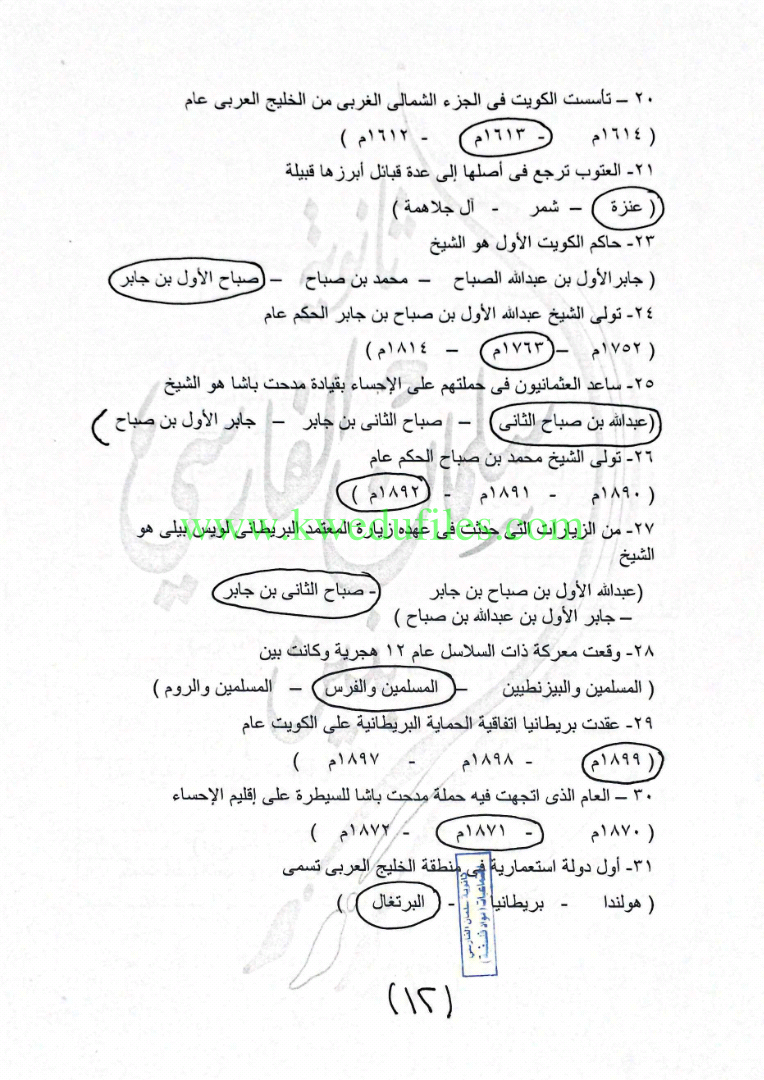 ٢٠ – تأسست الكويت فى الجزء الشمالى الغربى من الخليج العربى عام
( ١٦١٤م - ١٦١٣م - ١٦١٢م )
٢١- العتوب ترجع فى أصلها إلى عدة قبائل أبرزها قبيلة
( عنزة – شمر - آل جلاهمة )
٢٣- حاكم الكويت الأول هو الشيخ
( جابر الأول بن عبدالله الصباح – محمد بن صباح – صباح الأول بن جابر )
٢٤- تولى الشيخ عبدالله الأول بن صباح بن جابر الحكم عام
( ١٧٥٢م – ١٧٦٣م – ١٨١٤م )
٢٥- ساعد العثمانيون فى حملتهم على الإحساء بقيادة مدحت باشا هو الشيخ
(عبدالله بن صباح الثانى – صباح الثانى بن جابر – جابر الأول بن صباح )
٢٦- تولى الشيخ محمد بن صباح الحكم عام
( ١٨٩٠م - ١٨٩١م - ١٨٩٢م )
www.kwedufiles.com
٢٧- من الزيارات التى حدثت فى عهده زيارة المعتمد البريطانى لويس بيلى هو
الشيخ
(عبدالله الأول بن صباح بن جابر - صباح الثانى بن جابر
– جابر الأول بن عبدالله بن صباح )
٢٨- وقعت معركة ذات السلاسل عام ١٢ هجرية وكانت بين
( المسلمين والبيزنطيين – المسلمين والفرس – المسلمين والروم )
٢٩- عقدت بريطانيا اتفاقية الحماية البريطانية على الكويت عام
( ١٨٩٩م - ١٨٩٨م - ١٨٩٧م )
٣٠ – العام الذى اتجهت فيه حملة مدحت باشا للسيطرة على إقليم الإحساء
( ١٨٧٠م - ١٨٧١م - ١٨٧٢م )
٣١- أول دولة استعمارية فى منطقة الخليج العربى تسمى
( هولندا - بريطانيا - البرتغال )
ثانوية سلمان الفارسي
(١٢)